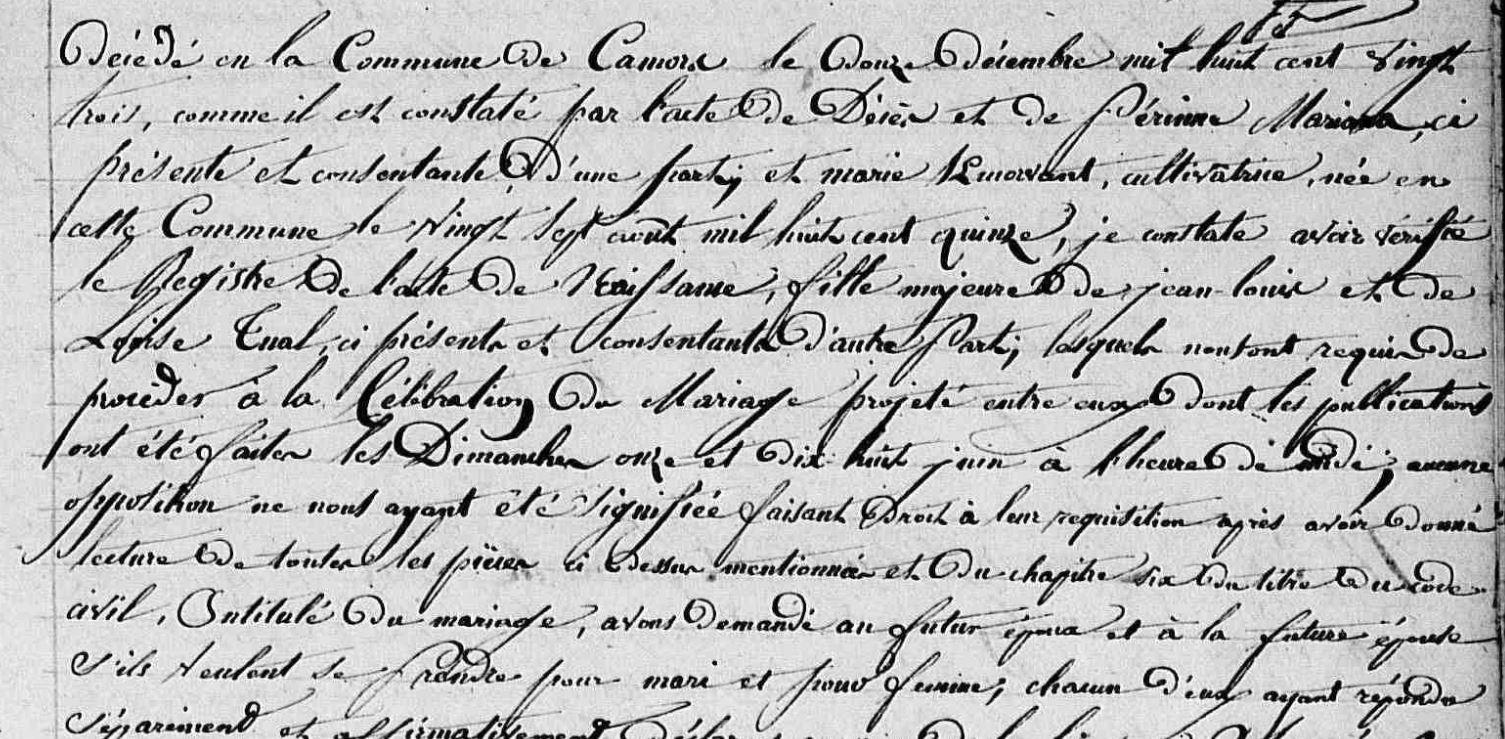 décédé en la Commune de Camors le douze décembre mil huit cent vingt
trois, comme il est constaté par l'acte de Décès et de Périnne Marion, ci
présente et consentante, D'une part; et marie Lemorvant, cultivatrice, née en
cette Commune le vingt sept août mil huit cent quinze, je constate avoir vérifié
le Registre de l'acte de Naissance, fille majeure de jean louis et de
Louise Tual, ci présents et consentants d'autre Part; lesquels nous ont requis de
procéder à la Célébration du Mariage projeté entre eux dont les publications
ont été faites les Dimanches onze et dix huit juin à l'heure de midi; aucune
opposition ne nous ayant été signifiée faisant Droit à leur requisition après avoir donné
lecture de toutes les pièces ci dessus mentionnées et du chapitre six du titre du code
civil, Intitulé du mariage, avons demandé au futur époux et à la future épouse
s'ils veulent se prendre pour mari et pour femme; chacun d'eux ayant répondu
séparément et affirmativement